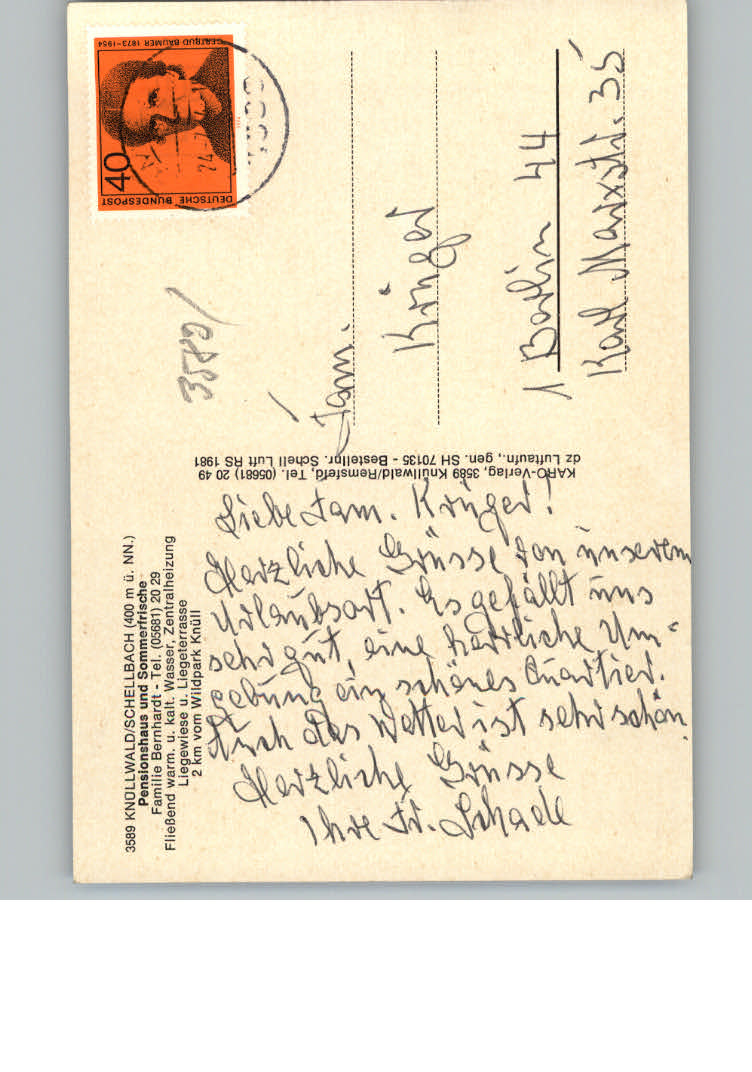 3589 KNÜLLWALD/SCHELLBACH (400 m ü. NN.)
Pensionshaus und Sommerfrische
Familie Bernhardt - Tel. (05681) 20 29
Fließend warm. u. kalt. Wasser, Zentralheizung
Liegewiese u. Liegeterrasse
2 km vom Wildpark Knüll
Liebe Fam. Krüger!
Herzliche Grüsse von unserem
Urlaubsort. Es gefällt uns
sehr gut, eine herrliche Um-
gebung ein schönes Quartier.
Auch das Wetter ist sehr schön.
Herzliche Grüsse
Ihre Fr. Schade
KARO-Verlag, 3589 Knüllwald/Remsfeld, Tel. (05681) 20 49
dz Luftaufn., gen. SH 70135 - Bestellnr. Schell Luft RS 1981
DEUTSCHE BUNDESPOST
40
GERTRUD BÄUMER 1873-1954
3589/
Fam.
Krüger
1 Berlin 44
Karl Marxstr. 35